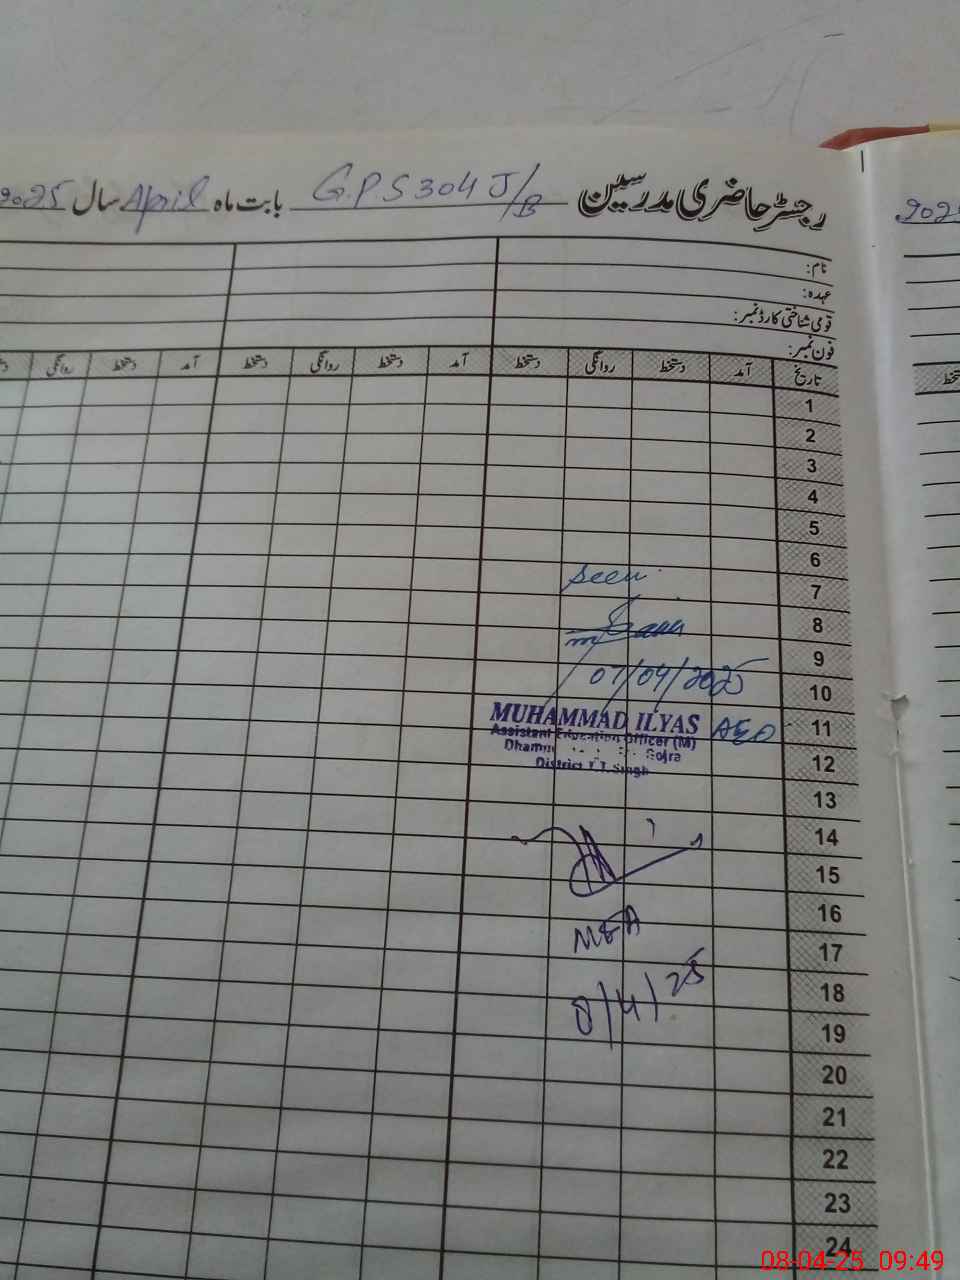 رجسٹر حاضری مدرسین G.P.S 304 J/B بابت ماہ April سال 2025
2025
نام:
عہدہ:
قومی شناختی کارڈ نمبر:
فون نمبر:
تاریخ آمد دستخط روانگی دستخط آمد روانگی دستخط آمد دستخط روانگی
1
2
3
4
5
6
7
8
9
10
11
12
13
14
15
16
17
18
19
20
21
22
23
24
Seen
07/04/2025
MUHAMMAD ILYAS AEO
Assistant Education Officer (M)
Gojra
District T.T.Singh
MEA
8/4/25
08-04-25 09:49